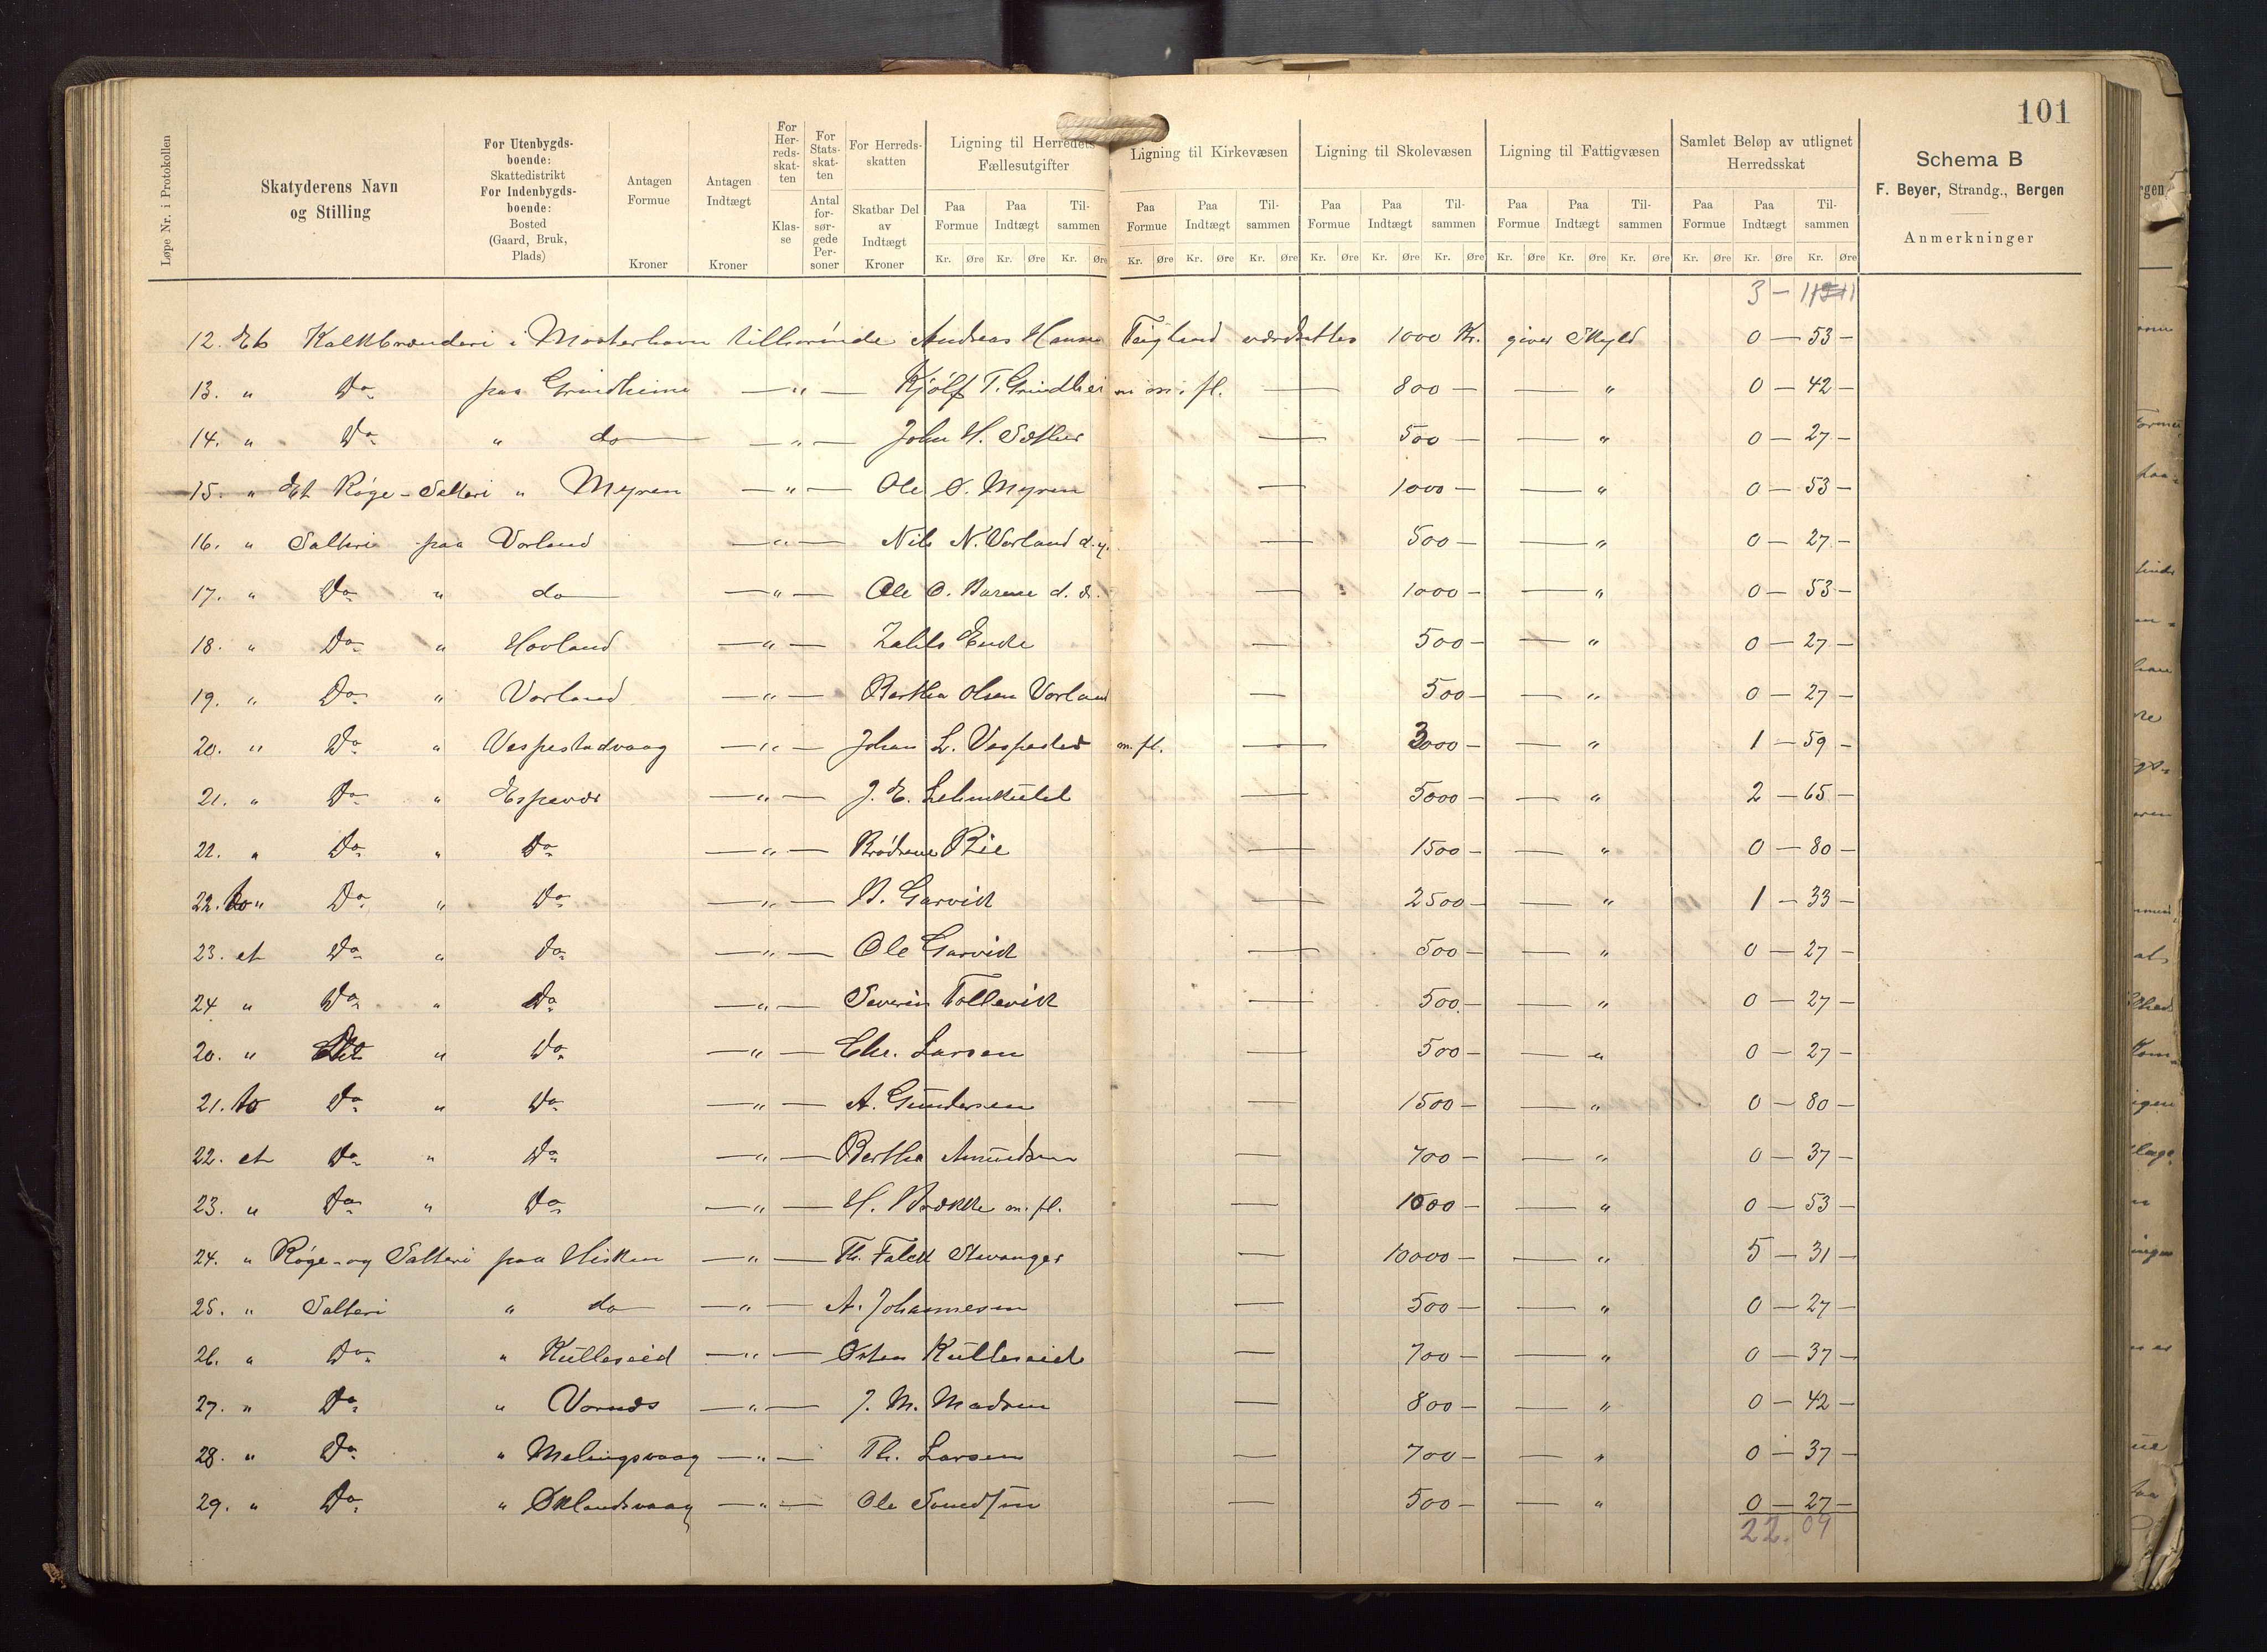 101
Løpe Nr. i Protokollen
Skatyderens Navn og Stilling
For Utenbygdsboende: Skattedistrikt For Indenbygdsboende: Bosted (Gaard, Bruk, Plads)
Antagen Formue Kroner
Antagen Indtægt Kroner
For Herredsskatten Klasse
For Statsskatten Antal forsørgede Personer
For Herredsskatten Skatbar Del av Indtægt Kroner
Ligning til Herredets Fællesutgifter
Paa Formue Paa Indtægt Tilsammen
Kr. Øre Kr. Øre Kr. Øre
Ligning til Kirkevæsen
Paa Formue Paa Indtægt Tilsammen
Kr. Øre Kr. Øre Kr. Øre
Ligning til Skolevæsen
Paa Formue Paa Indtægt Tilsammen
Kr. Øre Kr. Øre Kr. Øre
Ligning til Fattigvæsen
Paa Formue Paa Indtægt Tilsammen
Kr. Øre Kr. Øre Kr. Øre
Samlet Beløp av utlignet Herredsskat
Paa Formue Paa Indtægt Tilsammen
Kr. Øre Kr. Øre Kr. Øre
Schema B
F. Beyer, Strandg., Bergen
Anmerkninger
3 —
12. Et Kalkbrænderi i Mosterhavn tilhørende Andreas Hansen Teigland værdsættes 1000 Kr. giver Skyld 0 — 53 —
13. " Do paa Grindheim — " — Kjølf T. Grindheim m. fl. — 800 — — " 0 — 42 —
14. " Do " do — " — John H. Sæther — 500 — — " 0 — 27 —
15. " Et Røge-Salteri " Myren — " — Ole O. Myren — 1000 — — " 0 — 53 —
16. " Salteri paa Vorland — " — Nils N. Vorland d.y. — 500 — — " 0 — 27 —
17. " Do " do — " — Ole O. d. æ. — 1000 — — " 0 — 53 —
18. " Do " Hovland — " — — 500 — — " 0 — 27 —
19. " Do " Vorland — " — Bertha Olsen Vorland — 500 — — " 0 — 27 —
20. " Do " Vespestadvaag — " — Johan L. Vespestad m. fl. — 3000 — — " 1 — 59 —
21. " Do " Espevær — " — J. E. Lehmkuhl — 5000 — — " 2 — 65 —
22. " Do " Do — " — Brødrene — 1500 — — " 0 — 80 —
22. to " Do " Do — " — Garvik — 2500 — — " 1 — 33 —
23. et Do " Do — " — Ole Garvik — 500 — — " 0 — 27 —
24 " Do " Do — " — Severin Tollevik — 500 — — " 0 — 27 —
20. " " Do — " — Chr. Larsen — 500 — — " 0 — 27 —
21. to Do " Do — " — A. Gundersen — 1500 — — " 0 — 80 —
22. et Do " Do — " — Bertha Amundsen — 700 — — " 0 — 37 —
23. " Do " Do — " — H. Brække m. fl. — 1000 — — " 0 — 53 —
24. " Røge- og Salteri paa Hisken — " — Th. Falck Stavanger — 10000 — — " 5 — 31 —
25. " Salteri " do — " — A. Johannesen — 500 — — " 0 — 27 —
26. " Do " Kulleseid — " — Østen Kulleseid — 700 — — " 0 — 37 —
27. " Do " Vornæs — " — J. M. Madsen — 800 — — " 0 — 42 —
28. " Do " Melingsvaag — " — Th. Larsen — 700 — — " 0 — 37 —
29. " Do " Øklandsvaag — " — Ole — 500 — — " 0 — 27 —
22. 04